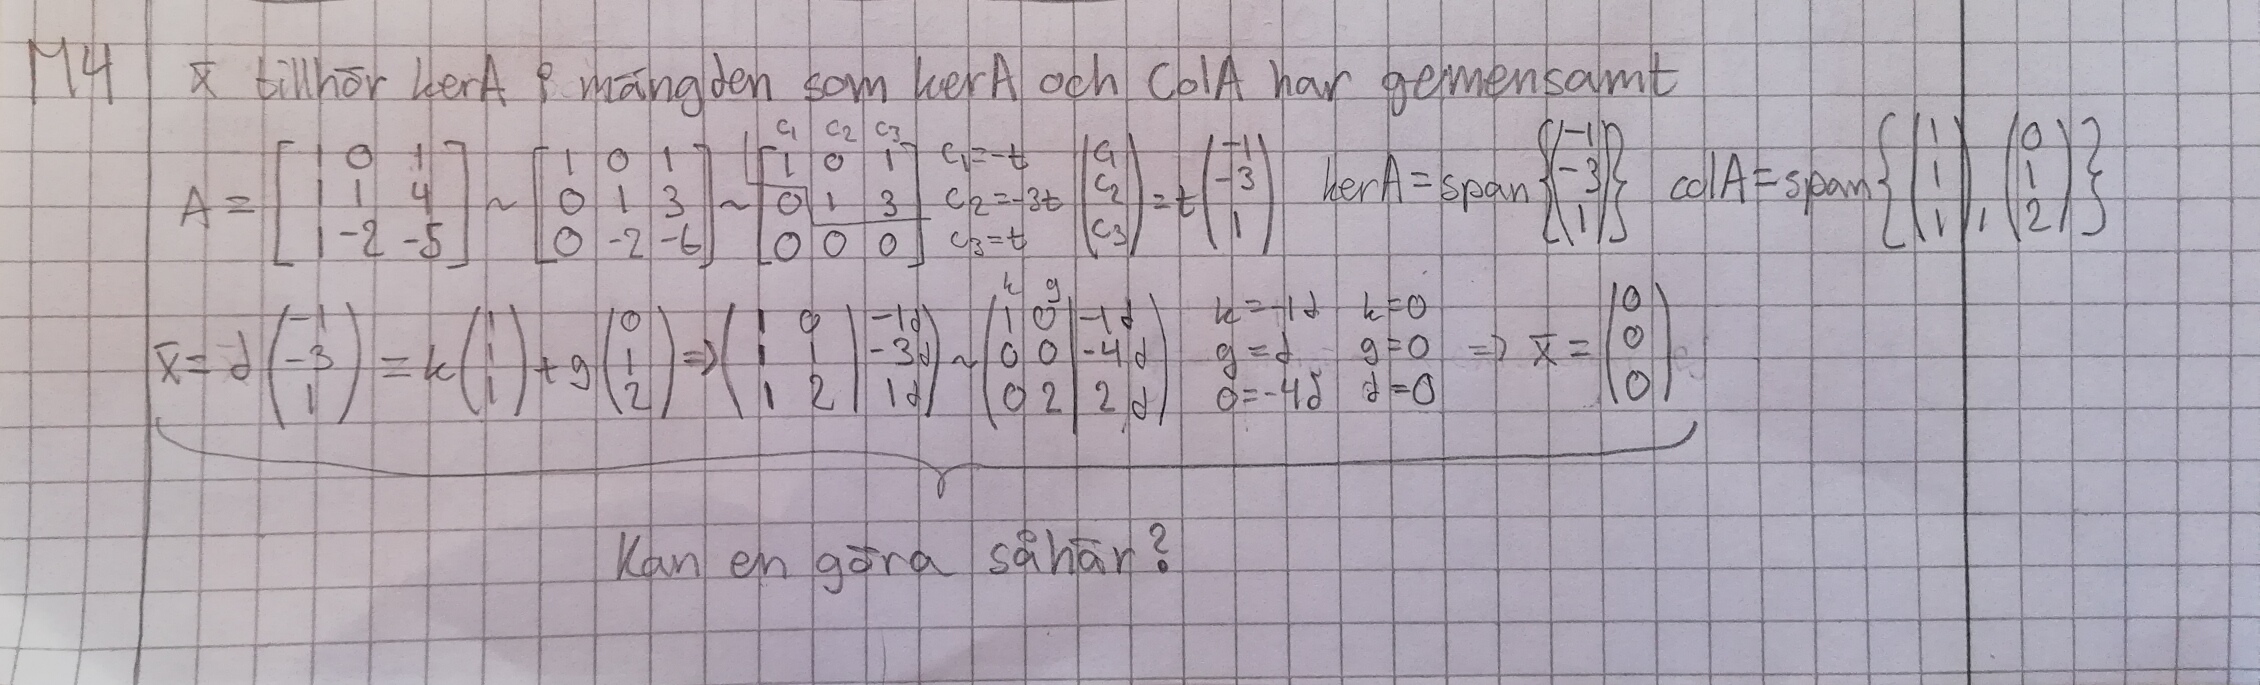 M4 x̄ tillhör kerA & mängden som kerA och ColA har gemensamt
A = [1 0 1; 1 1 4; 1 -2 -5] ~ [1 0 1; 0 1 3; 0 -2 -6] ~ [1 0 1; 0 1 3; 0 0 0] c₁ c₂ c₃ c₁=-t c₂=-3t c₃=t (c₁; c₂; c₃) = t(-1; -3; 1) kerA = span{(-1; -3; 1)} colA = span{(1; 1; 1), (0; 1; 2)}
x̄ = d(-1; -3; 1) = k(1; 1; 1) + g(0; 1; 2) ⇒ (1 0 | -1d; 1 1 | -3d; 1 2 | 1d) ~ k g (1 0 | -1d; 0 0 | -4d; 0 2 | 2d) k=-1d g=d 0=-4d k=0 g=0 d=0 ⇒ x̄ = (0; 0; 0)
Kan en göra såhär?